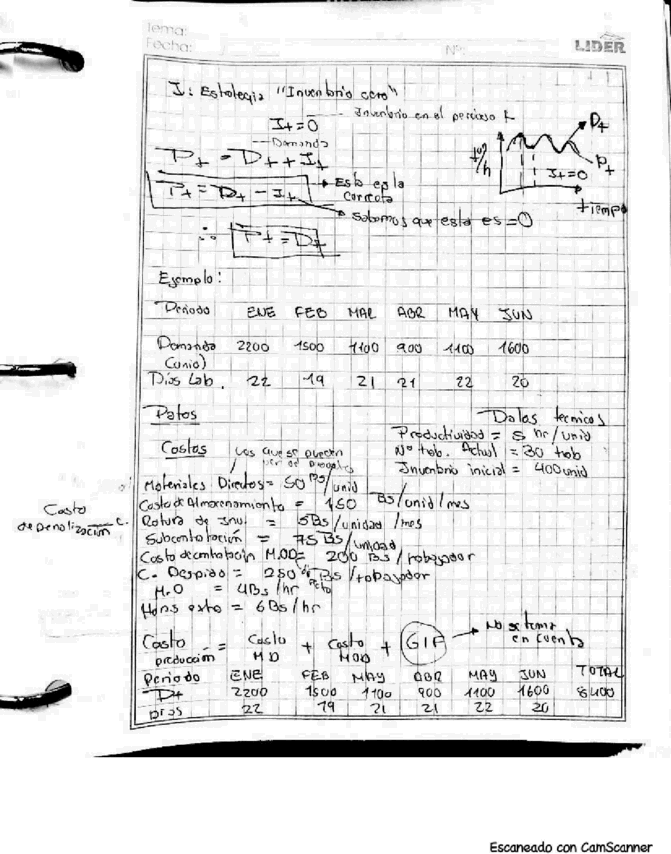 Tema:
Fecha:
Nº:
LIDER
I: Estrategia "Inventario cero"
It = 0 Inventario en el periodo t
Demanda
Pt = Dt + It
Pt = Dt - It Esta es la correcta
Sabemos que esta es = 0
∴ Pt = Dt
Dt
Pt
It = 0
tiempo
Ejemplo:
Periodo ENE FEB MAR ABR MAY JUN
Demanda (unid) 2200 1500 1100 900 1100 1600
Días Lab. 22 19 21 21 22 20
Datos
Datos tecnicos
Productividad = 5 hr/unid
Costos
Nº trab. Actual = 30 trab
Inventario inicial = 400 unid
Materiales Directos = 50 Bs/unid
Costo de Almacenamiento = 1,50 Bs/unid/mes
Costo de penalización
Rotura de Inv. = 5Bs/unidad/mes
Subcontratación = 75 Bs/unidad
Costo de contratación M.OD = 200 Bs/trabajador
C. Despido = 250 Bs/trabajador
M.O = 4Bs/hr
Horas extra = 6Bs/hr
Costo producción = Costo MD + Costo MOD + GIF No se toma en cuenta
Periodo ENE FEB MAY ABR MAY JUN TOTAL
Dt 2200 1500 1100 900 1100 1600 8400
Días 22 19 21 21 22 20
Escaneado con CamScanner